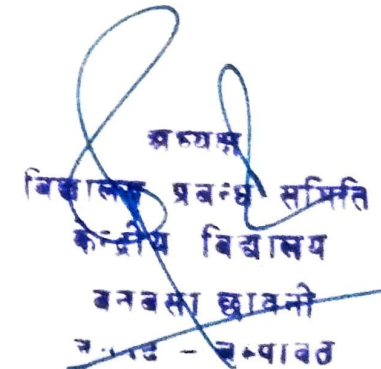 अध्यक्ष
विद्यालय प्रबन्ध समिति
केन्द्रीय विद्यालय
बनबसा छावनी
- चम्पावत